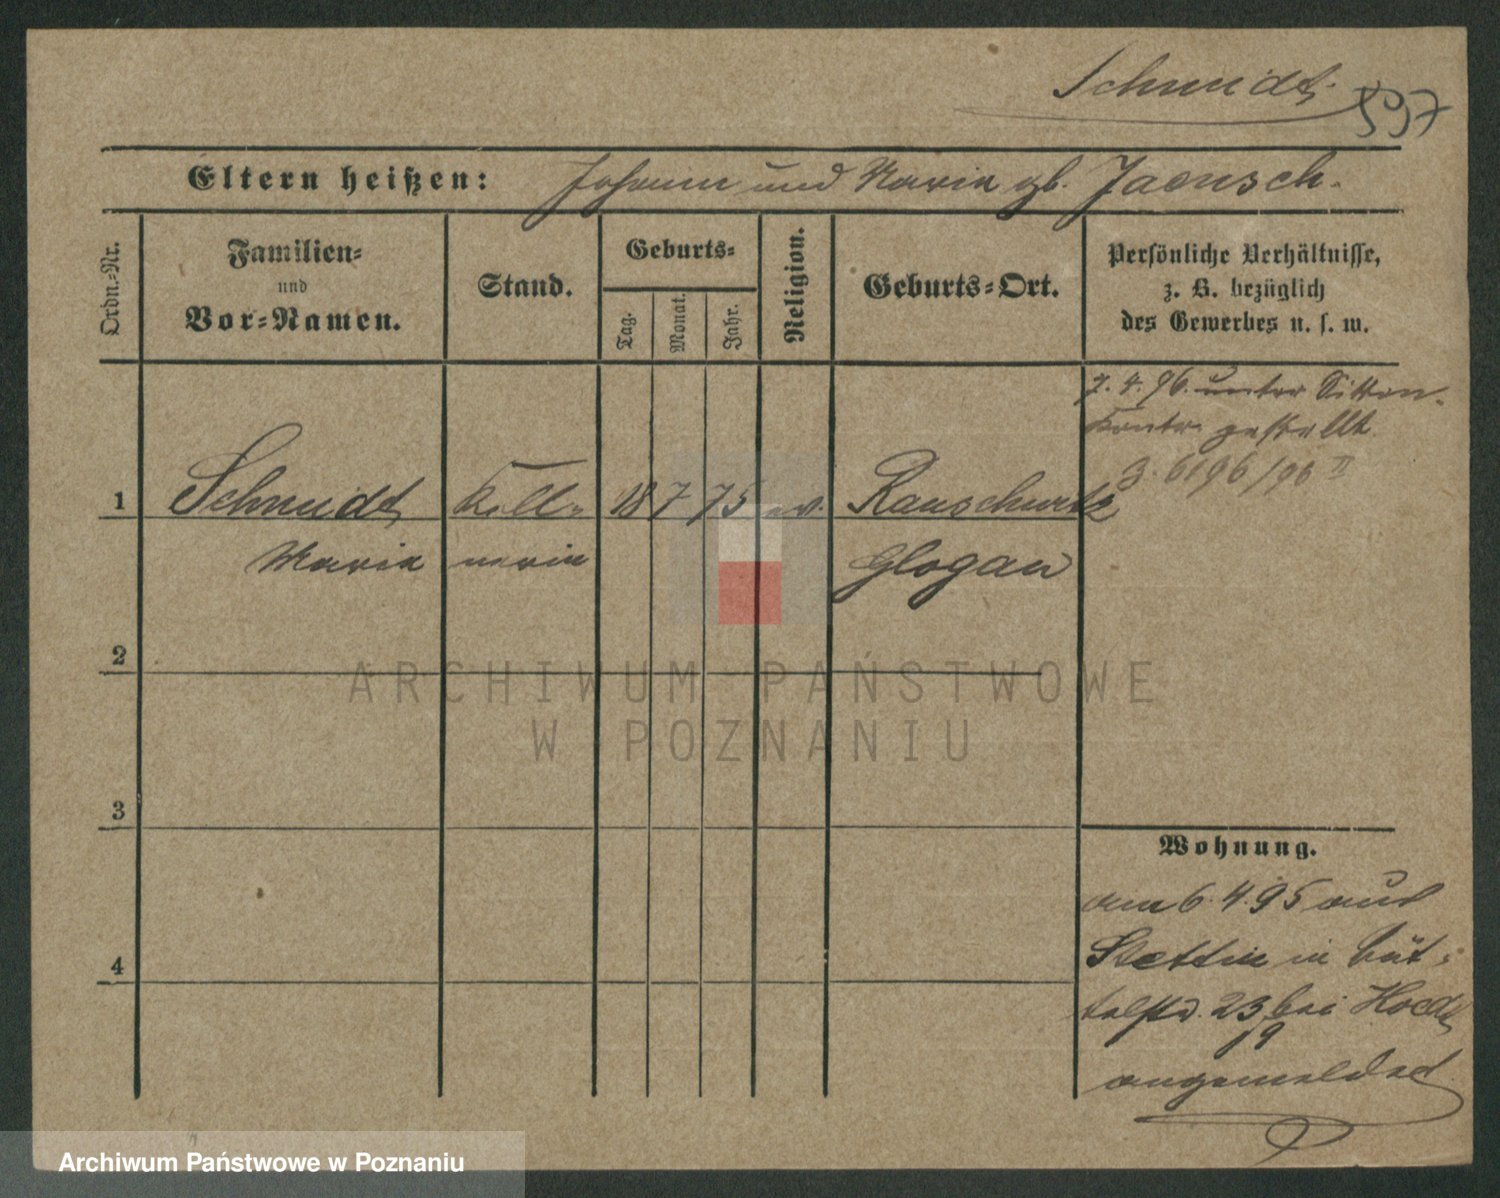 Schmidt.
597
Eltern heißen: Johann und Maria gb. Jaensch.
Ordn.-Nr.
Familien-
und
Vor-Namen.
Stand.
Geburts-
Tag.
Monat.
Jahr.
Religion.
Geburts-Ort.
Persönliche Verhältnisse,
z. B. bezüglich
des Gewerbes u. s. w.
7. 4. 96. unter Sitten-
Kontr. gestellt.
3. 6196/96 II
1 Schmidt Kell- 18 7 75 ev.
Maria nerin Glogau
2
3
4
Wohnung.
am 6. 4. 95 aus
Stettin in Büt-
telstr. 23 bei
19
angemeldet
ARCHIWUM PAŃSTWOWE
W POZNANIU
Archiwum Państwowe w Poznaniu